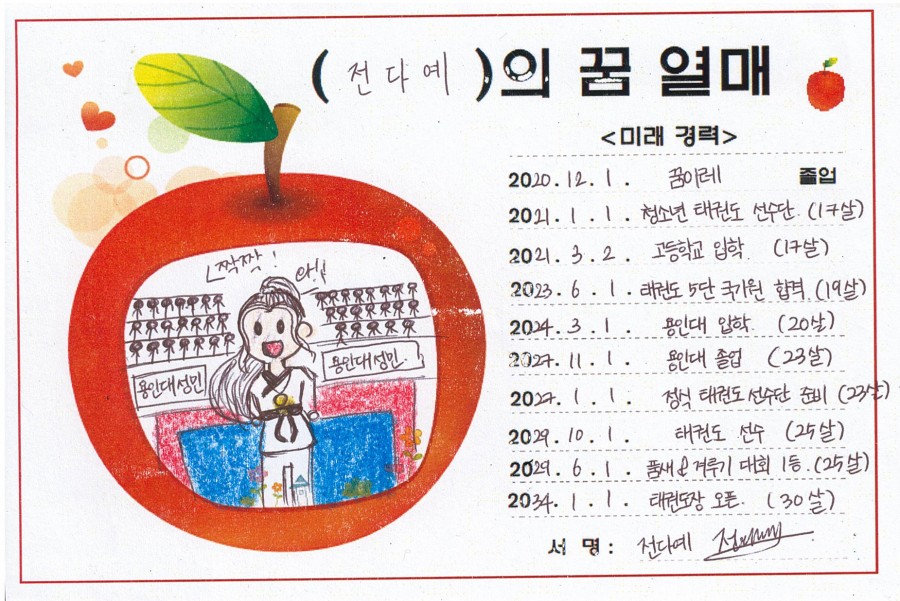 ( 전다예 )의 꿈 열매
<미래 경력>
2020. 12. 1. 꿈이레 졸업
2021. 1. 1. 청소년 태권도 선수단. (17살)
2021. 3. 2. 고등학교 입학. (17살)
2023. 6. 1. 태권도 5단 국기원 합격. (19살)
2024. 3. 1. 용인대 입학. (20살)
2027. 11. 1. 용인대 졸업 (23살)
2027. 1. 1. 정식 태권도 선수단 준비 (23살)
2029. 10. 1. 태권도 선수 (25살)
2029. 6. 1. 품새 & 겨루기 대회 1등. (25살)
2034. 1. 1. 태권도장 오픈. (30살)
서 명 : 전다예
짝짝!
와!!
용인대성민
용인대성민.